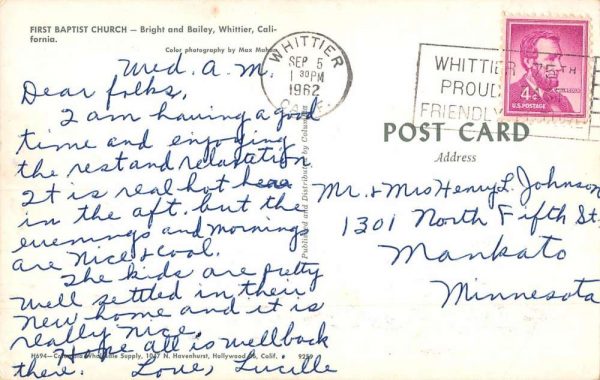 FIRST BAPTIST CHURCH — Bright and Bailey, Whittier, Cali-
fornia.
Color photography by Max Mahan
Wed. A.M.
Dear folks,
I am having a good
time and enjoying
the rest and relaxation
It is real hot here
in the aft. but the
evenings and mornings
are nice & cool.
The kids are pretty
well settled in their
new home and it is
really nice.
Hope all is well back
there. Love, Lucille
H694— Wholesale Supply, 1047 N. Havenhurst, Hollywood 46, Calif.
Published and Distributed by Columbia
WHITTIER
SEP 5
1 30 PM
1962
CALIF.
WHITTIER 75TH
PROUD
FRIENDLY
4¢
U.S. POSTAGE
LINCOLN
POST CARD
Address
Mr. & Mrs Henry L. Johnson
1301 North Fifth St.
Mankato
Minnesota